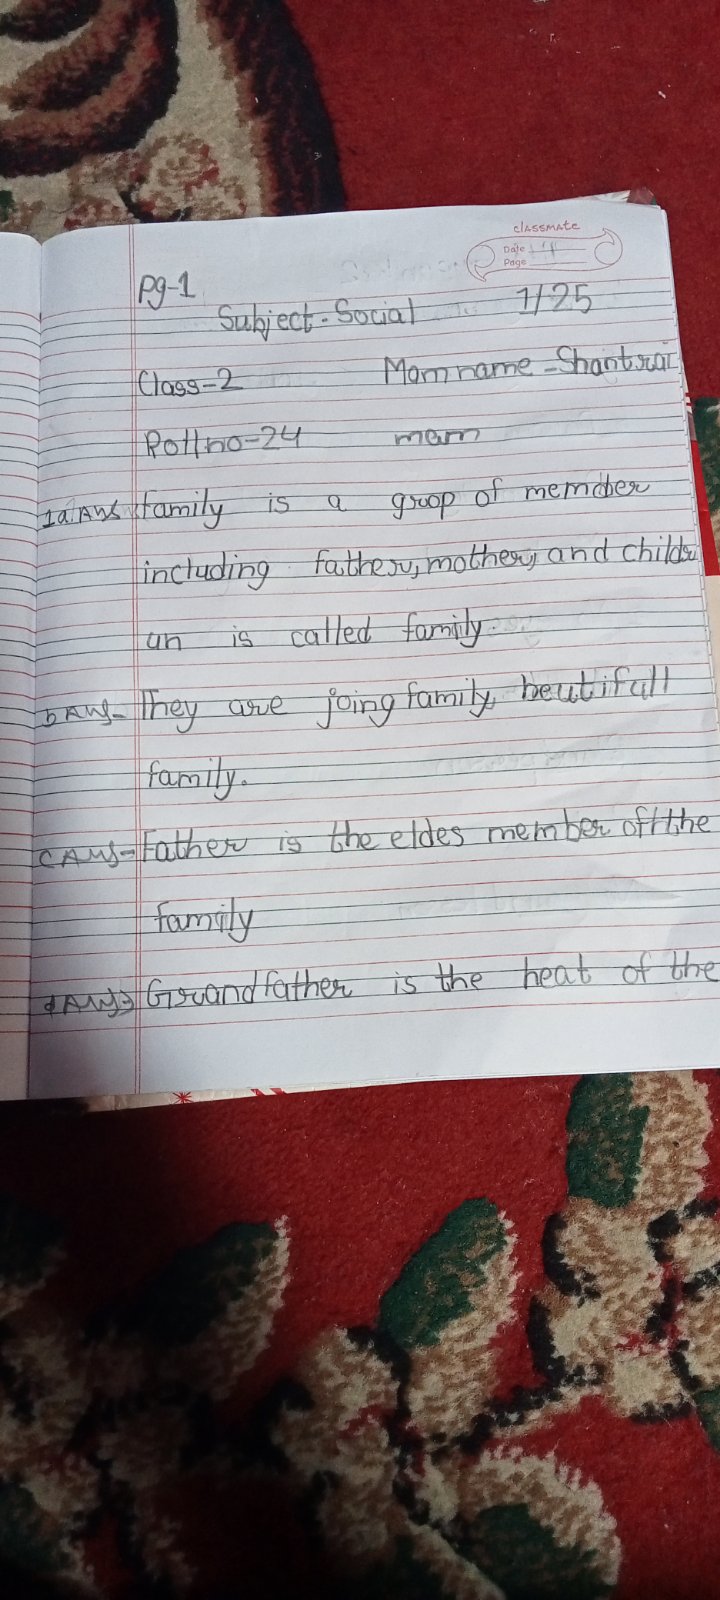 classmate
Date
Page
Pg-1
Subject-Social 1/25
Class-2 Mam name - Shantrai
Roll no-24 mam
1a. Ans family is a groop of memcber
including father, mother, and childr
un is called family.
b Ans- They are joing family, beutifull
family.
c Ans- Father is the eldes member of the
family
d Ans- Grandfather is the heat of the